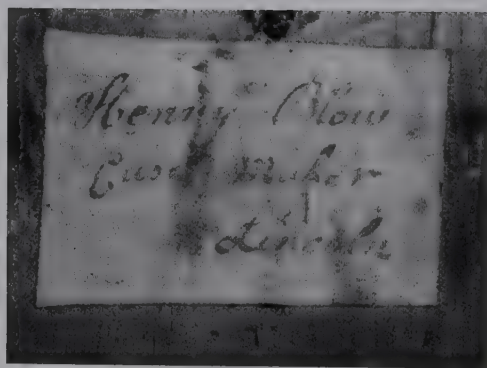 Henry Clow
Case Maker
Lincoln